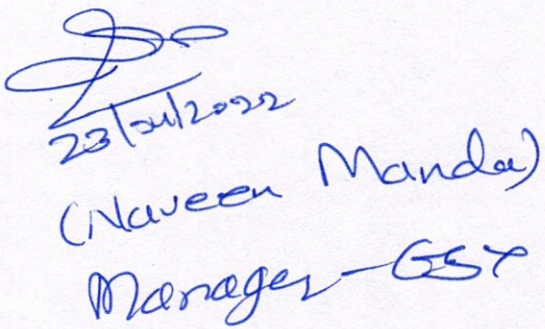 23/04/2022
(Naveen Manda)
Manager - GSX